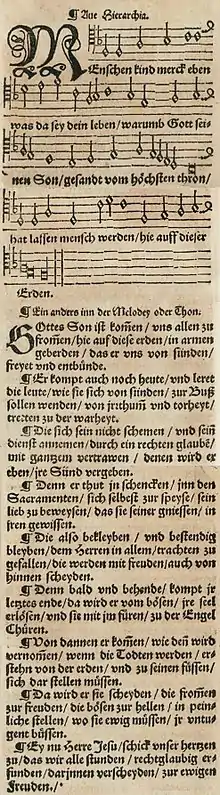 ¶ Aue Hierarchia.
MEnschen kind merck eben
was da sey dein leben / warumb Gott sei-
nen Son / gesandt vom höchsten thron /
hat lassen mensch werden / hie auff dieser
Erden.
¶ Ein anders inn der Melodey oder Thon.
GOttes Son ist kom̃en / vns allen zu
from̃en / hie auf diese erden / in armen
geberden / das er vns von sünden /
freyet vnd entbünde.
¶ Er kompt auch noch heute / vnd leret
die leute / wie sie sich von sünden / zur Buß
sollen wenden / von jrthum̃ vnd torheyt /
tretten zu der warheyt.
¶ Die sich sein nicht schemen / vnd sein̄
dienst annemen / durch ein rechten glaubē /
mit gantzem vertrawen / denen wird er
eben / jre Sünd vergeben.
¶ Denn er thut jn schencken / jnn den
Sacramenten / sich selbest zur speyse / sein
lieb zu beweysen / das sie seiner gniessen / in
jren gewissen.
¶ Die also bekleyben / vnd bestendig
bleyben / dem Herren in allem / trachten zu
gefallen / die werden mit freuden / auch von
hinnen scheyden.
¶ Denn bald vnd behende / kompt jr
letztes ende / da wird er vom bösen / jre seel
erlösen / vnd sie mit jm füren / zu der Engel
Chüren.
¶ Von dannen er kom̃en / wie den̄ wird
vernom̃en / wenn die Todten werden / er-
stehn von der erden / vnd zu seinen füssen /
sich dar stellen müssen.
¶ Da wird er sie scheyden / die from̃en
zur freuden / die bösen zur hellen / in pein-
liche stellen / wo sie ewig müssen / jr vntu-
gent büssen.
¶ Ey nu Herre Jesu / schick vnser hertzen
zu / das wir alle stunden / rechtglaubig er-
funden / darjnnen verscheyden / zur ewigen
Freuden. /